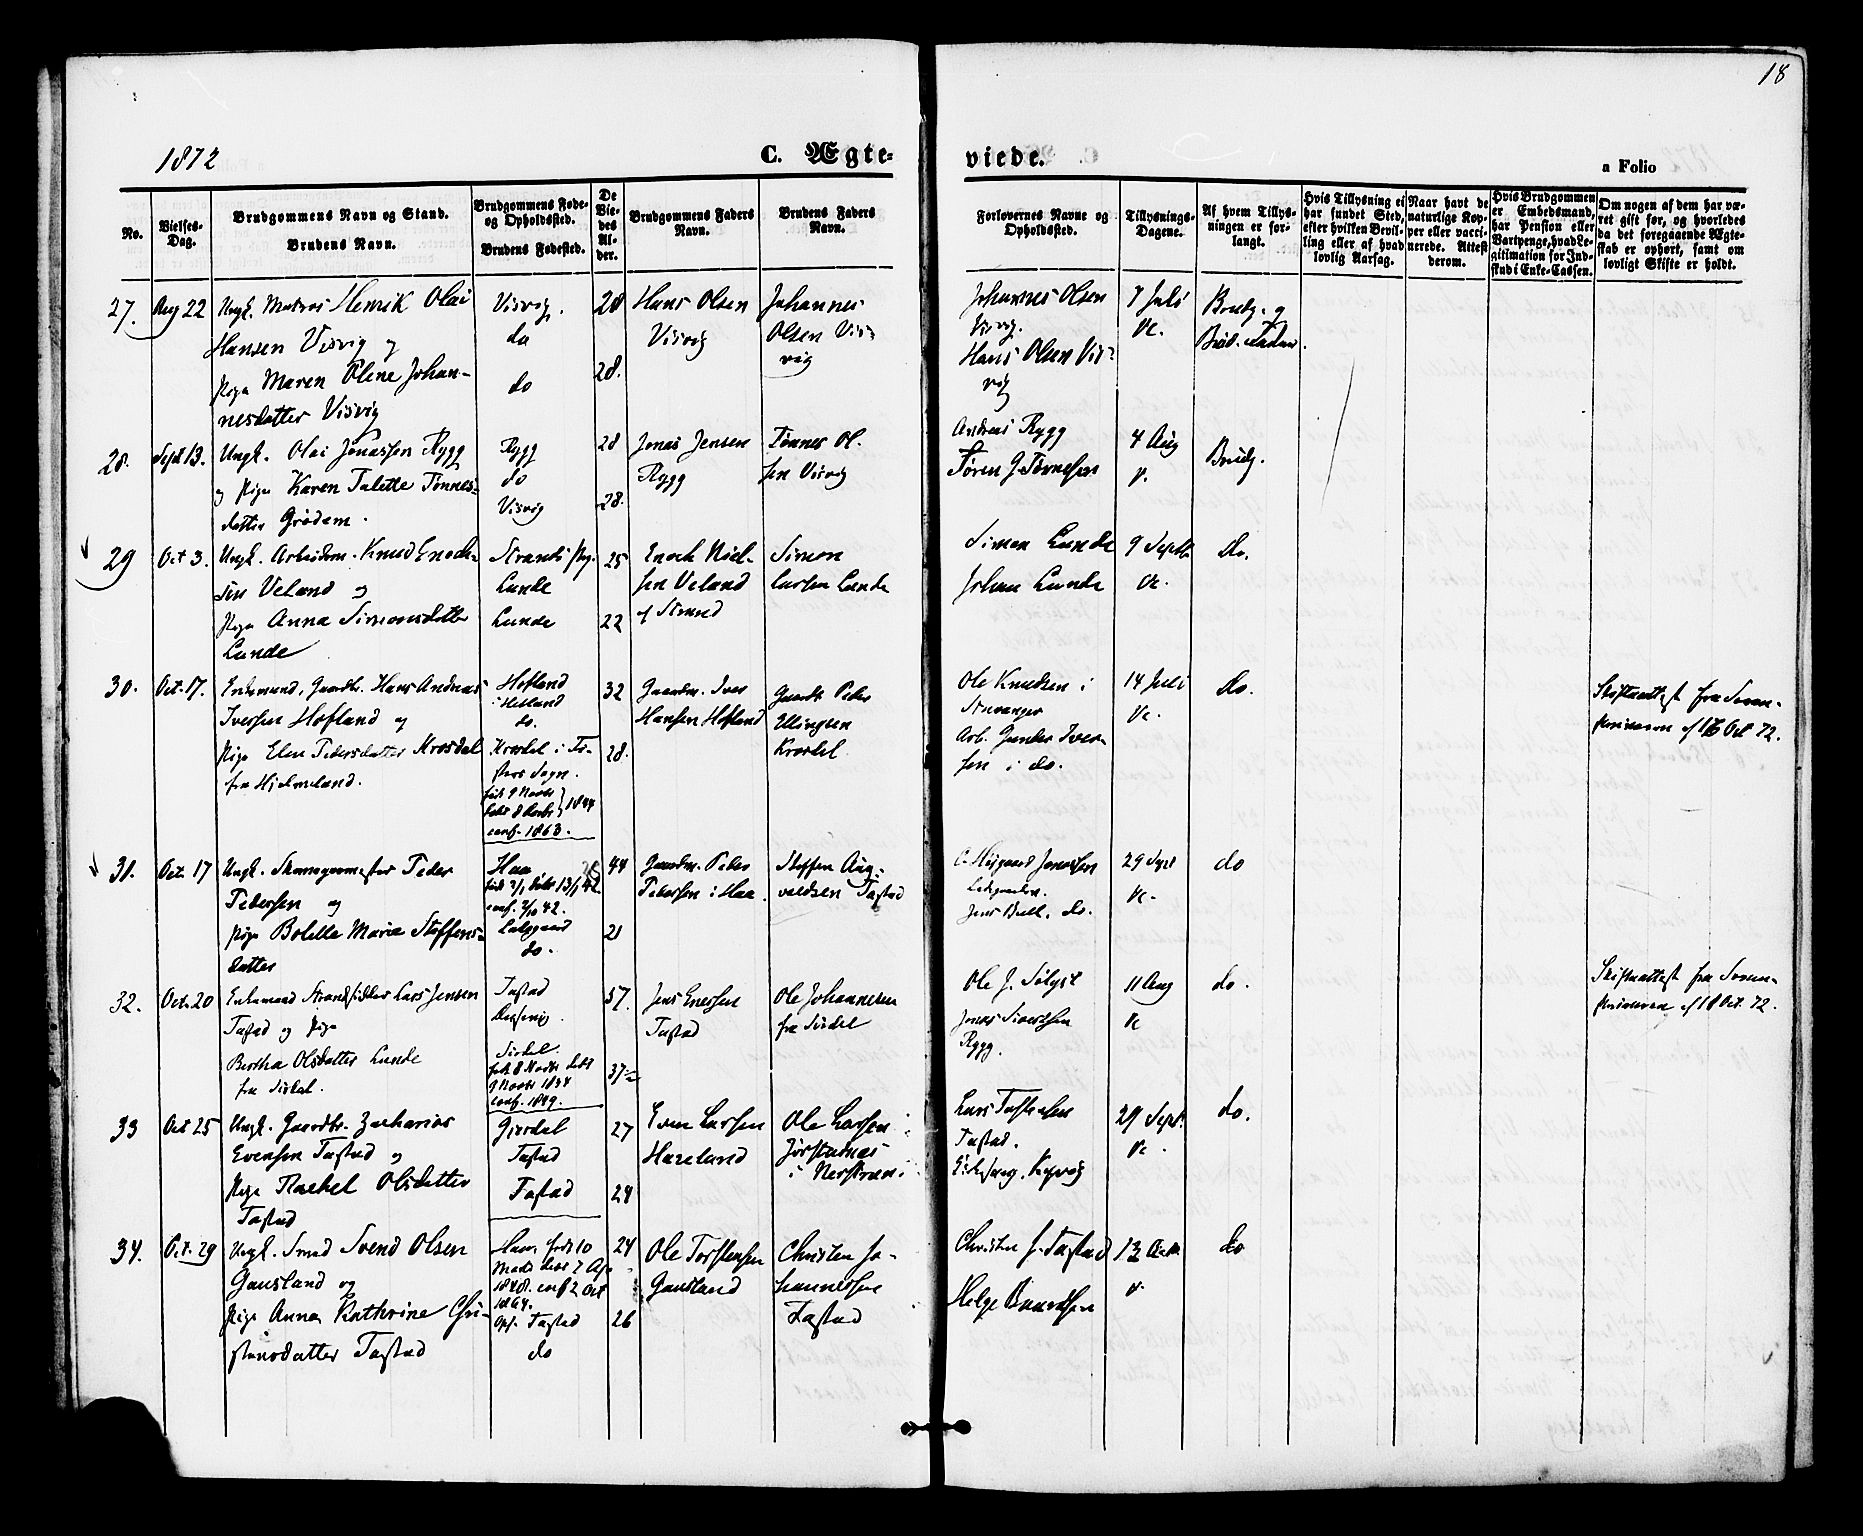 18
1872
C. Ægte-
viede.
a Folio
No.
Vielses-
Dag.
Brudgommens Navn og Stand.
Brudens Navn.
Brudgommens Føde-
og Opholdssted.
Brudens Fødested.
De
Vie-
des
Al-
der.
Brudgommens Faders
Navn.
Brudens Faders
Navn.
Forlovernes Navne og
Opholdssted.
Tillysnings-
Dagene.
Af hvem Tillys-
ningen er for-
langt.
Hvis Tillysning ei
har fundet Sted,
efter hvilken Bevil-
ling eller af hvad
lovlig Aarsag.
Naar havt de
naturlige Kop-
per eller vacci-
nerede. Attest
derom.
Hvis Brudgommen
er Embedsmand,
har Pension eller
Vartpenge, hvad Le-
gitimation for Ind-
skud i Enke-Cassen.
Om nogen af dem har væ-
ret gift før, og hvorledes
da det foregaaende Ægte-
skab er ophørt, samt om
lovligt Skifte er holdt.
27.
Aug 22
Ungk. Matros Henrik Olai
Hansen Visvig og
Pige Maren Oline Johan-
nesdatter Visvig
Visvig.
do
do
28
28.
Hans Olsen
Visvig
Johannes
Olsen Vis-
vig
Johannes Olsen
Visvig.
Hans Olsen Vis-
vig
7 Juli
Brudg. og
28.
Sept 13.
Ungk. Olai Jonassen Rygg
og Pige Karen Talette Tønnes-
datter Grødem.
Rygg
do
Visvig
28
28.
Jonas Jensen
Rygg
Tønnes Ol-
sen Visvig
Andreas Rygg
Søren J. Tønnesen
4 Aug
Brudg.
29
Oct 3.
Ungk. Arbeidsm. Knud Enoch-
sen Veland og
Pige Anna Simonsdatter
Lunde
Strands Pg.
Lunde
Lunde
25
22
Enoch Niel-
sen Veland
af Strand
Simon
Larsen Lunde
Simon Lunde
Johan Lunde
9 Septb
do.
30.
Oct. 17.
Enkemand, Gaardbr. Hans Andreas
Iversen Hofland og
Pige Elen Pedersdatter Krosdal
fra Hjelmeland.
Hofland
i Hetland
do.
conf. 1863.
32
28.
Gaardm. Iver
Hansen Hofland
Gaardb Peder
Ellingsen
Krosdal
Ole Knudsen i
Stavanger
Arb. Gunder Iver-
sen i do.
14 Juli
do.
Skifteattest fra Soren-
skriveren af 16 Oct 72.
31.
Oct. 17
Ungk. Skomagermester Peder
Pedersen og
Pige Bolette Maria Steffens-
datter
Haa
Ladegaard
do.
44
21
Gaardm. Peder
Pedersen i Haa.
Steffen Aug-
valdsen Tastad
Ladegaarden.
Jens Bull, do.
29 Sept
do
32.
Oct. 20
Enkemand Strandsidder Lars Jensen
Tastad og Pige
Bertha Olsdatter Lunde
fra Sirdal.
Tastad
Sirdal.
conf. 1849.
57.
37
Jens Enersen
Tastad
Ole Johannesen
fra Sirdal
Ole J. Sølyst
Jonas Sivertsen
Rygg.
11 Aug
do.
Skifteattest fra Soren-
skriveren af 18 Oct. 72.
33
Oct 25
Ungk. Gaardbr. Zacharias
Evensen Tastad og
Pige Rachel Olsdatter
Tastad
Tastad
Tastad
27
24
Even Larsen
Haaland
Ole Larsen
Jørstadnæs
i Nerstrand
Lars Tastesen
Tastad.
29 Sept.
do.
34.
Oct. 29
Ungk. Smed Svend Olsen
Gausland og
Pige Anna Kathrine Chri-
stensdatter Tastad
1864.
Tastad
do
24
26
Ole Torstensen
Gausland
Christen Jo-
hannessen
Tastad
Christen J. Tastad
Helge Baardsen
13
do